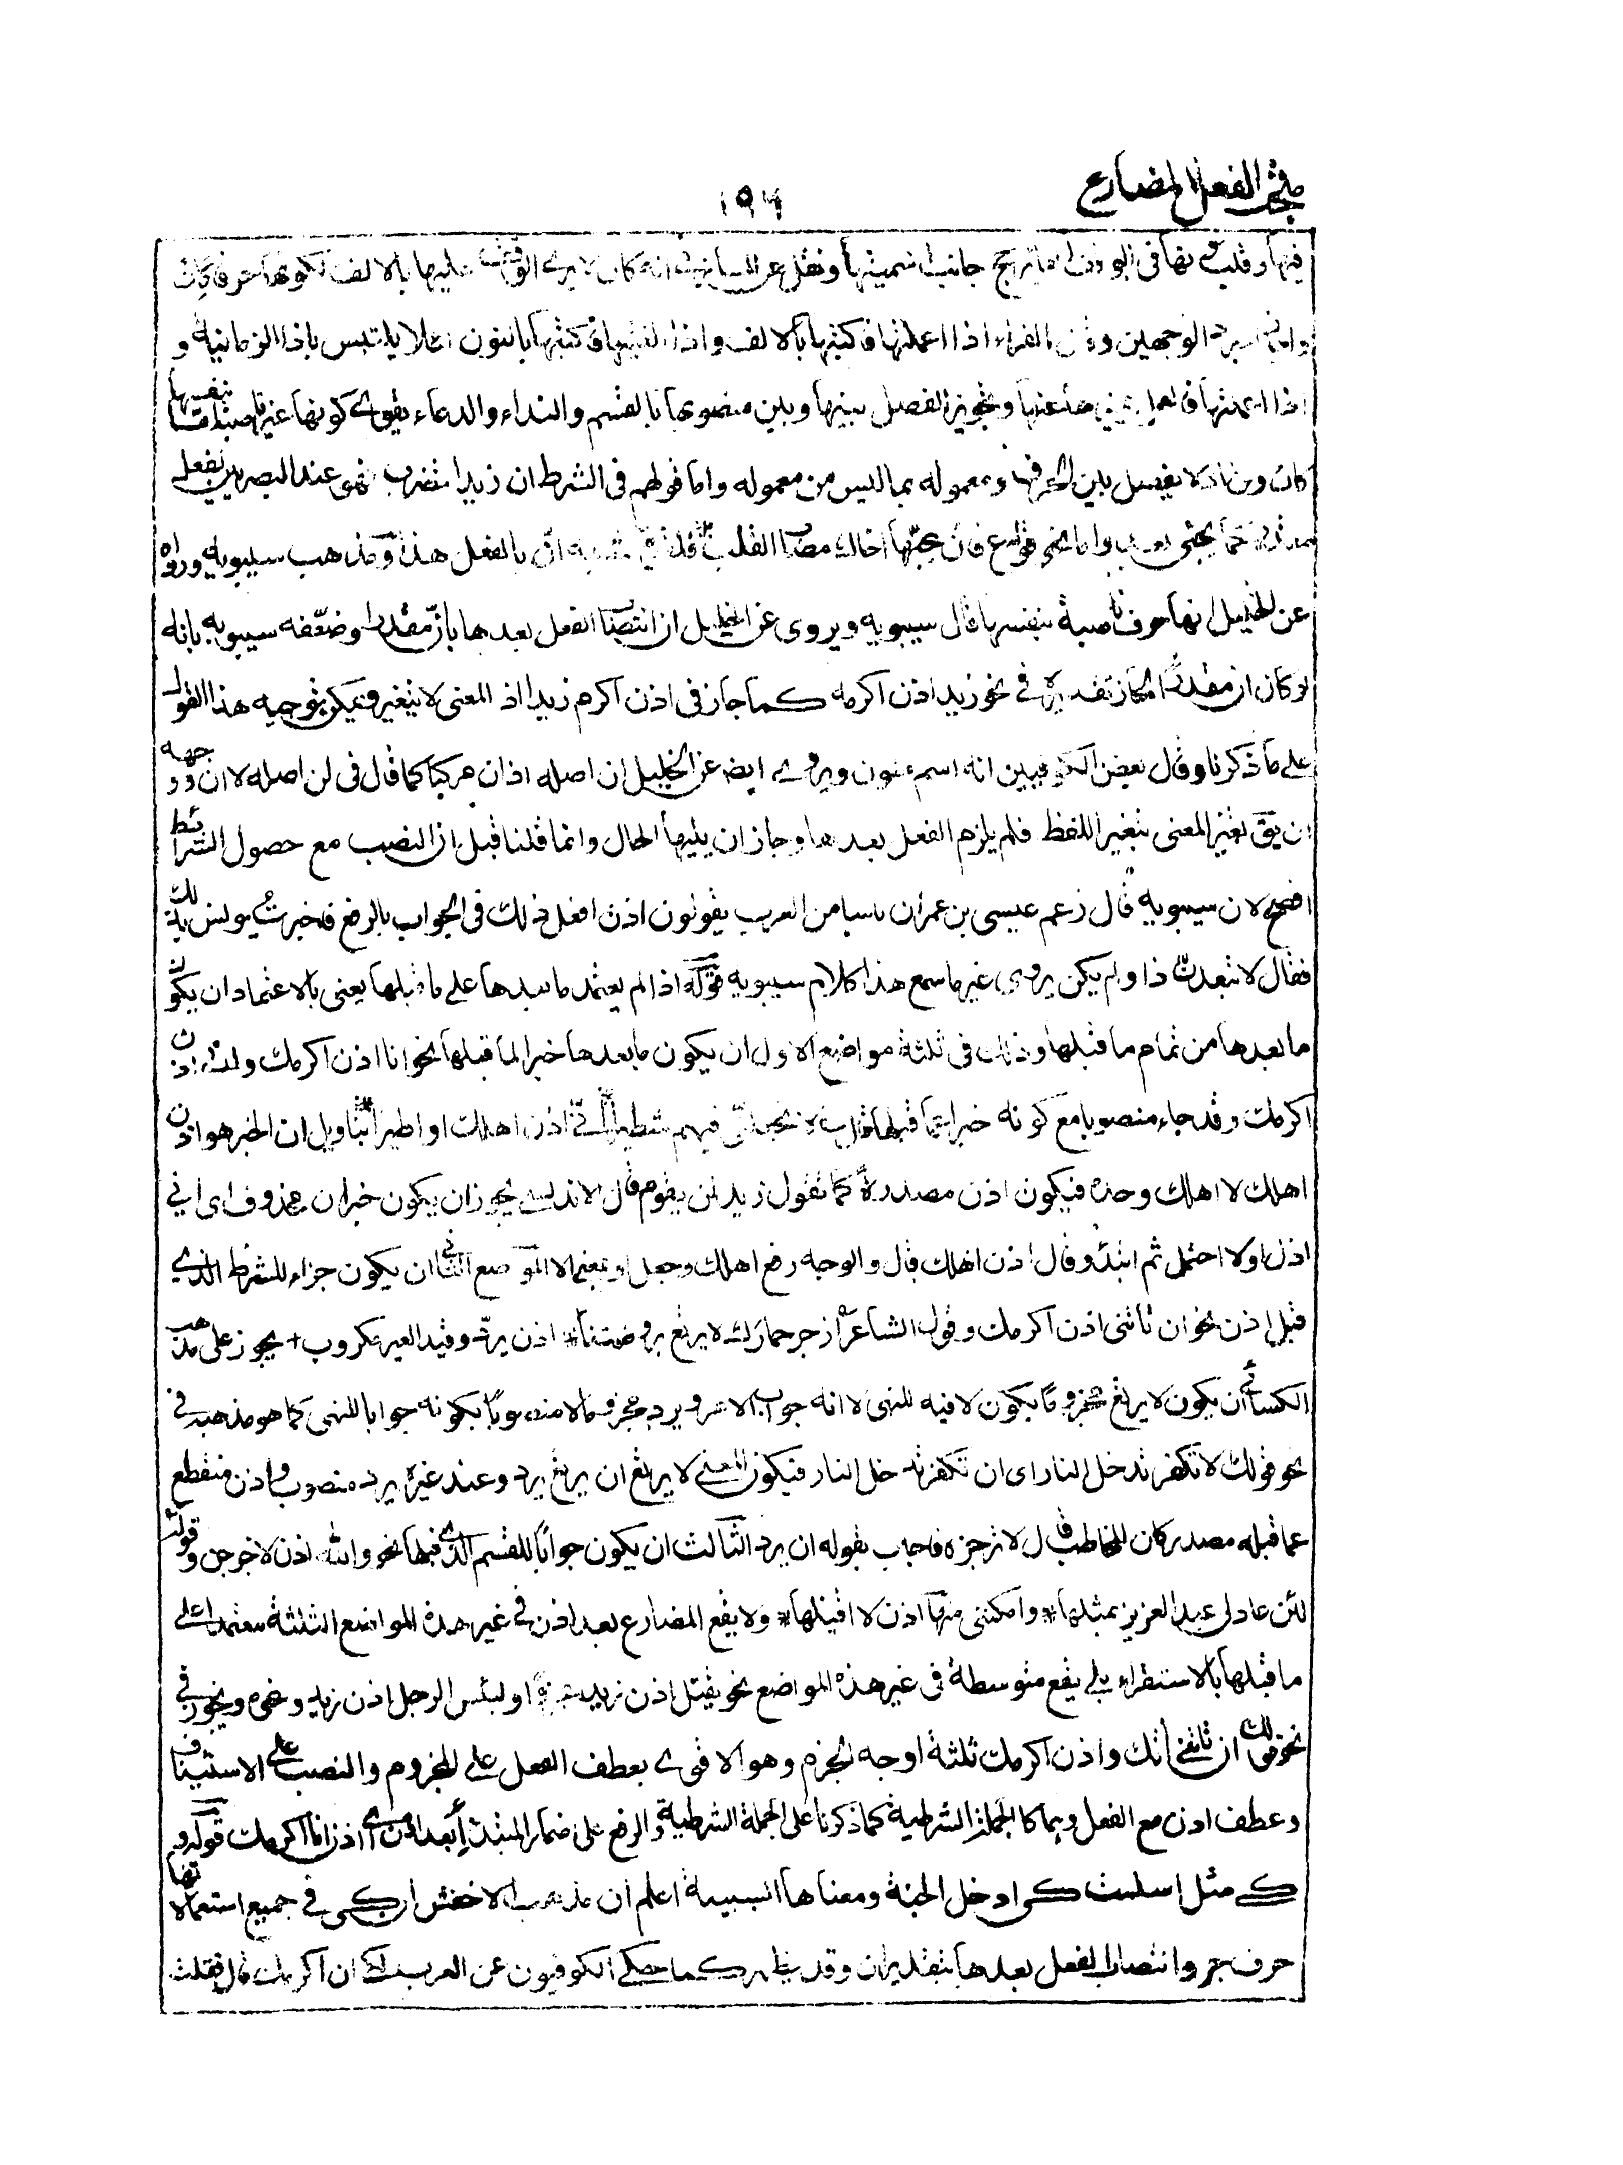 مبحث الفعل المضارع
١٩٦
فيها وقلب نونها في الوقف الفا يرجح جانب اسميتها ونقل عن المازني انه كان لا يرى الوقف عليها بالالف لكونها حرفا كان
واجاز المبرد الوجهين وعن الفراء اذا اعملتها فاكتبها بالالف واذا الغيتها فاكتبها بالنون لئلا يلتبس باذا الزمانية و
اذا اعملتها فالعمل يميزها عنها وتجويز الفصل بينها وبين منصوبها بالقسم والنداء والدعاء يقوي كونها غير ناصبة بنفسها
كان ولن اذ لا يفصل بين الحرف ومعموله بما ليس من معموله واما قولهم في الشرط ان زيدا تضرب فهو عند البصريين بفعل
مقدر هذا ومذهب سيبويه ورواه
عن الخليل انها حرف ناصبة بنفسها قال سيبويه ويروى عن الخليل ان انتصاب الفعل بعدها بان مقدرة وضعفه سيبويه بانه
لو كان ان مقدرة لجاز تقديره في نحو زيد اذن اكرمه كما جاز في اذن اكرم زيدا اذ المعنى لا يتغير ويمكن توجيه هذا القول
على ما ذكرنا وقال بعض الكوفيين انه اسم منون ويروى ايض عن الخليل ان اصله اذ ان مركبا كما قال في لن اصله لا ان ووجهه
ان يق تغير المعنى بتغير اللفظ فلم يلزم الفعل بعدها وجاز ان يليها الحال وانما قلنا قبل ان النصب مع حصول الشرائط
افصح لان سيبويه قال زعم عيسى بن عمر ان ناسا من العرب يقولون اذن افعل ذلك في الجواب بالرفع فاخبرت يونس بذلك
فقال لا تبعدن ذا ولم يكن يروي غير ما سمع هذا كلام سيبويه قوله اذا لم يعتمد ما بعدها على ما قبلها يعنى بالاعتماد ان يكون
ما بعدها من تمام ما قبلها وذلك في ثلثة مواضع الاول ان يكون ما بعدها خبرا لما قبلها نحو انا اذن اكرمك ولقد اذن
اكرمك وقد جاء منصوبا مع كونه خبرا عما قبلها قال لا تتركني فيهم شطيرا اني اذن اهلك او اطيرا بتاويل ان الخبر هو اذن
اهلك لا اهلك وحده فيكون اذن مصدرة كما تقول زيد لن يقوم قال الاندلسي يجوز ان يكون خبر ان محذوفا اى اني
اذل او لا احتمل ثم ابتدأ وقال اذن اهلك قال والوجه رفع اهلك وجعل او بمعنى الا الموضع الثاني ان يكون جزاء للشرط الذي
قبل اذن نحو ان تاتني اذن اكرمك وقول الشاعر ازجر حمارك لا يرتع بروضتنا * اذن يرد وقيد العير مكروب + يجوز على مذهب
الكسائي ان يكون لا يرتع مجزوما بكون لا فيه للنهي لا انه جواب الامر ويرد مجزوما لا منصوبا بكونه جوابا للنهي كما هو مذهبه في
نحو قولك لا تكفر تدخل النار اى ان تكفر تدخل النار فيكون المعنى لا يرتع ان يرتع يرد وعند غيره يرد منصوب واذن منقطع
عما قبله مصدر كان المخاطب قال لا ازجره فاجاب بقوله اذن يرد الثالث ان يكون جوابا للقسم الذي قبلها نحو والله اذن لاخرجن وقوله
لئن عاد لى عبد العزيز بمثلها * وامكننى منها اذن لا اقيلها * ولا يقع المضارع بعد اذن في غير هذه المواضع الثلثة معتمدا على
ما قبلها بالاستقراء بلى يقع متوسطة في غير هذه المواضع نحو يقتل اذن زيد عمرا او لبئس الرجل اذن زيد ونحوه ويجوز في
نحو قولك ان تاتني آتك واذن اكرمك ثلثة اوجه الجزم وهو الاقوى بعطف الفعل على المجزوم والنصب على الاستيناف
وعطف اذن مع الفعل وبها كالجملة الشرطية كما ذكرنا على الجملة الشرطية والرفع على اضمار المبتدأ بعد اذن اى اذن انا اكرمك قوله و
كى مثل اسلمت كى ادخل الجنة ومعناها السببية اعلم ان مذهب الاخفش ان كى في جميع استعمالاتها
حرف جر وانتصاب الفعل بعدها بتقدير ان وقد يظهر كما حكى الكوفيون عن العرب لكى ان اكرمك قال فقلت